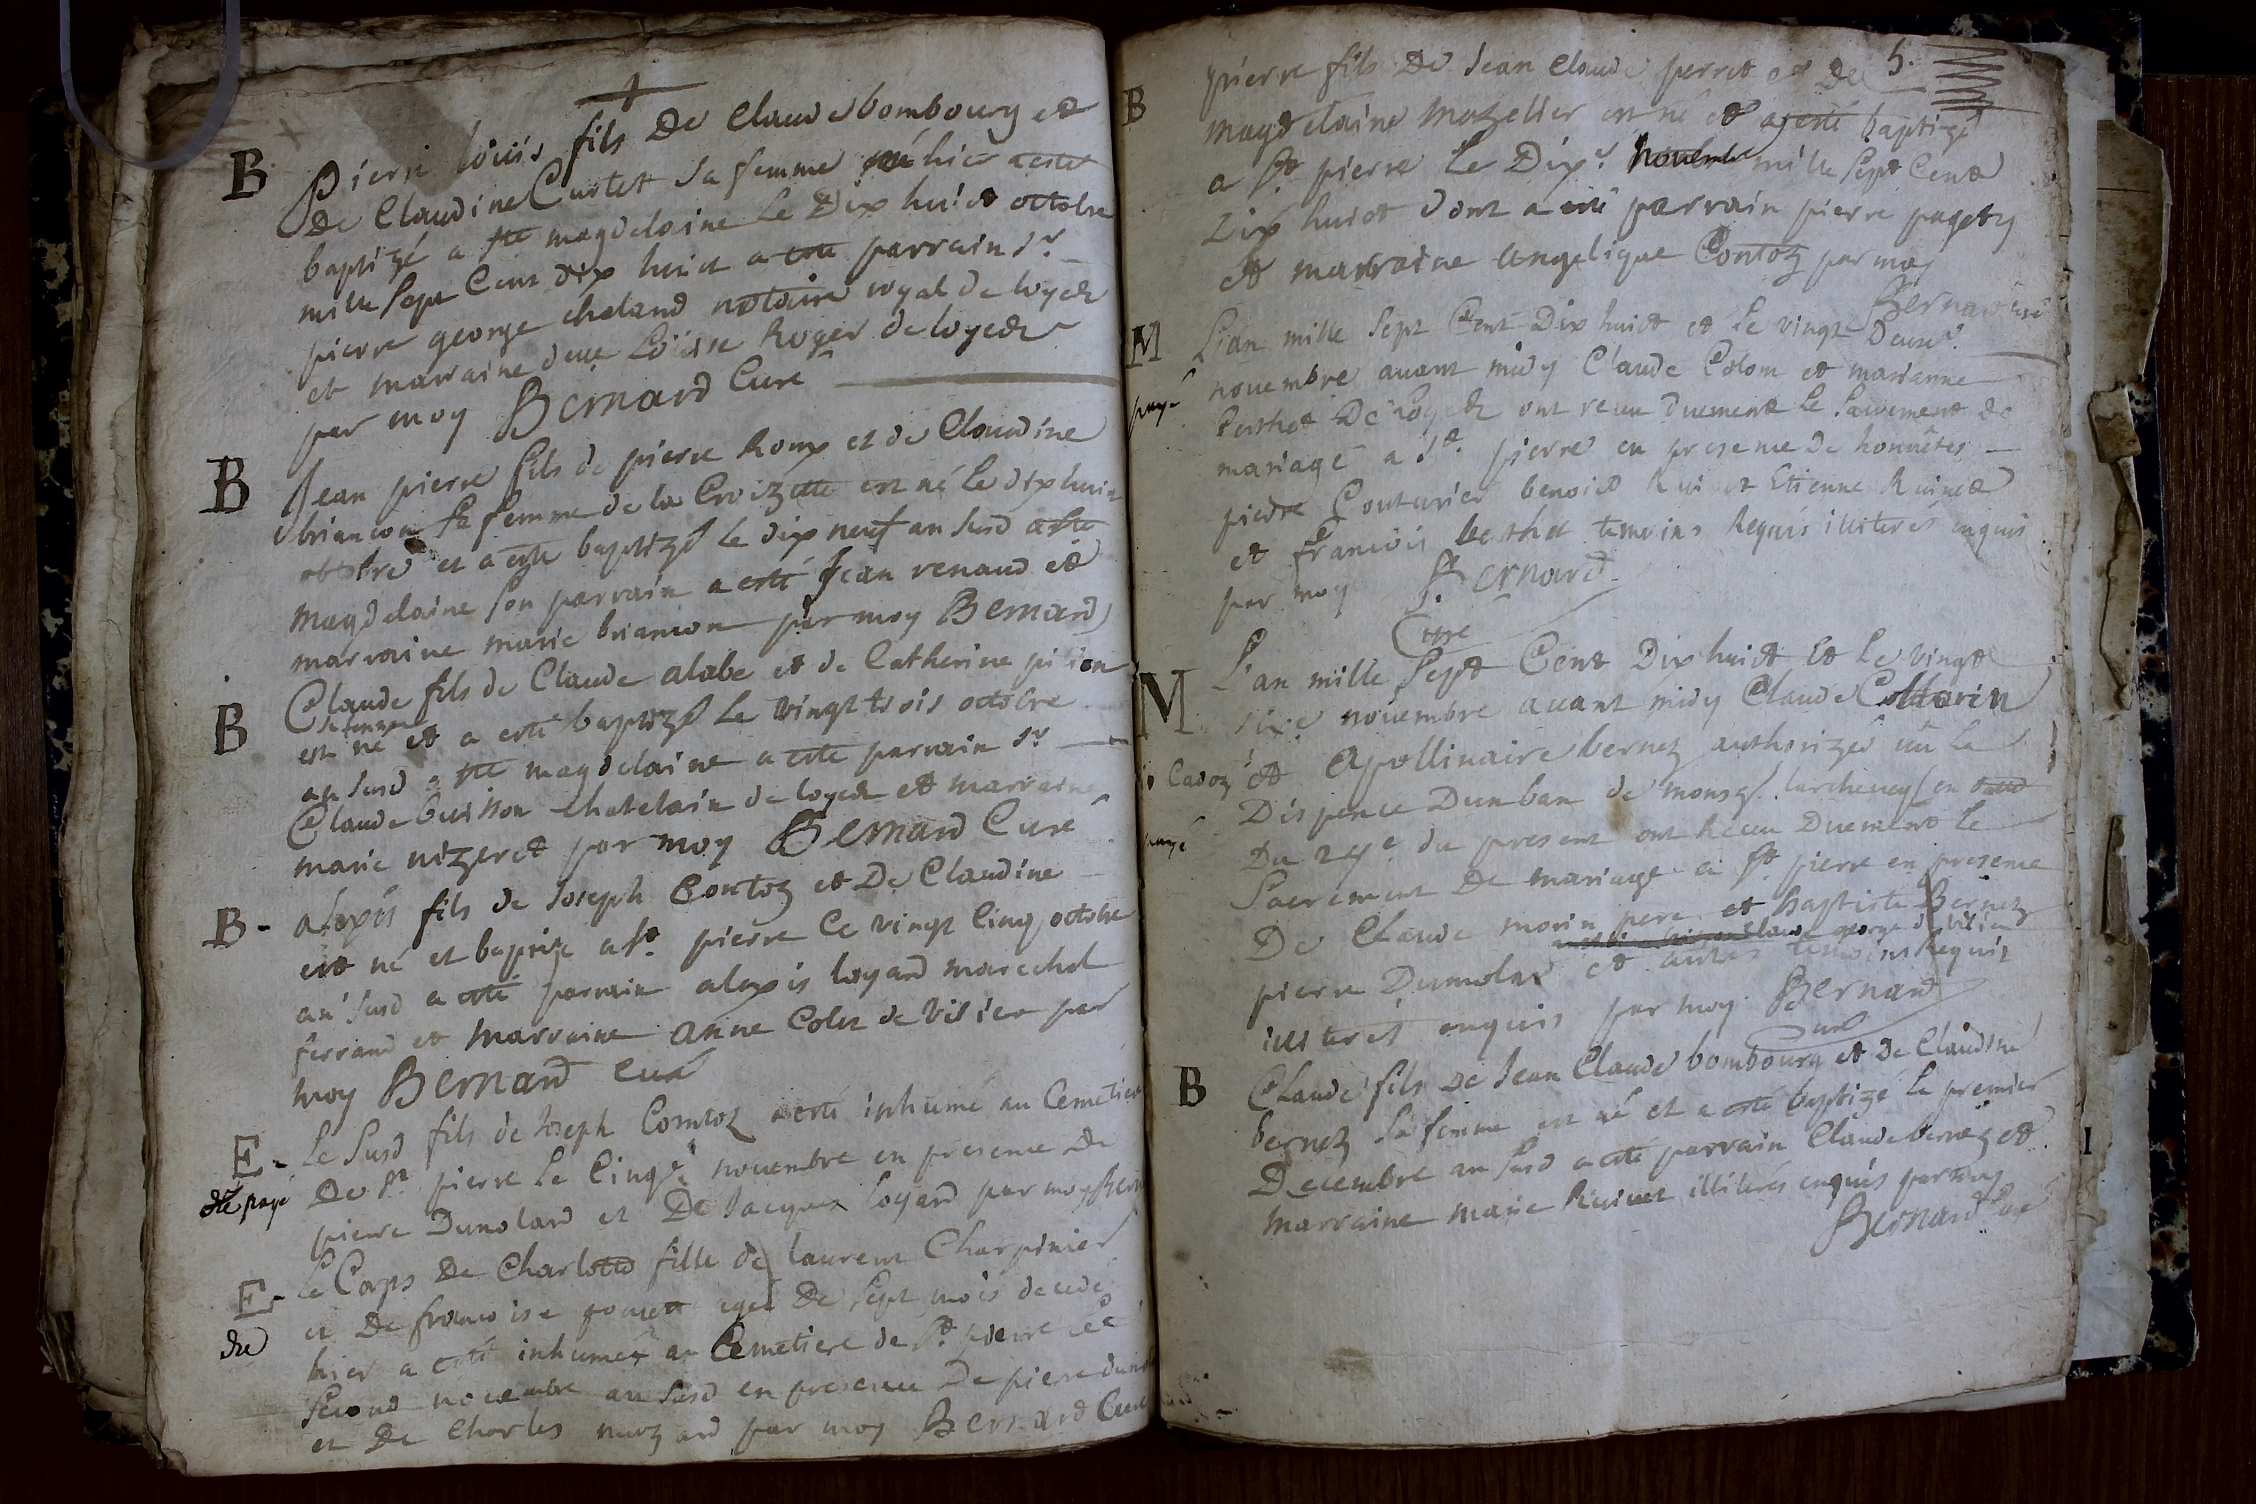 B Pierre loüis fils De Claude bombourg et
De Claudine Curtet sa femme né hier a esté
baptizé a ste magdelaine le Dix huict octobre
mille sept Cent dix huict a esté parrain sr
pierre george chaland notaire royal de loyette
et marraine dlle Loüise Roger de loyette
par moy Bernard Curé
B Jean pierre fils de pierre Roux et de Claudine
briancon sa femme de la Croizette est né le dix huict
octobre et a esté baptizé le dix neuf an susd a ste
magdelaine son parrain a esté Jean renaud et
marraine marie briancon par moy Bernard
B Claude fils de Claude alabe et de Catherine
sa femme
est né et a esté baptizé le vingt trois octobre
an susd a ste magdelaine a esté parrain sr
Claude buisson chatelain de loyette et marraine
marie nizeret par moy Bernard Curé
B- alexis fils de Joseph Contoz et De Claudine
est né et baptizé a st. pierre le vingt cinq octobre
an susd a esté parrain alexis loyard marechal
ferrand et marraine anne Colet de vilieu par
moy Bernard curé
E- Le susd fils de Joseph Comtoz a esté inhumé au Cemetiere
De st pierre le Cinqe novembre en presence De
dte payé
pierre Dumolard et De Jacques loyard par moy Bern
E- Le Corps De Charlotte fille de laurent Charpinier
et De francoise gouett agée De sept mois decedé
due
hier a esté inhumée au Cemetiere de st. pierre le
second novembre an susd en presence De pierre dumol
et De Charles par moy Bernard Curé
5.
B pierre fils De Jean Claude perret et De
magdelaine mazellier est né et a esté baptizé
a st pierre le Dixe. novembre mille sept Cent
Dix huict dont a esté parrain pierre pagety
et marraine angelique Contoz par moy
Bernard curé
M L'an mille sept Cent Dix huict et le vingt Deuxe.
novembre auant midy Claude Colom et marianne
payé
berthet De loyette ont receu duement le sacrement de
mariage a st. pierre en presence de honnêtes
piedre Couturier benoict Rui et Etienne Ruinet
et francois berthet temoins Requis illiterés enquis
par moy J. Bernard
Curé
M L'an mille sept Cent Dix huict Et le vingt
sixe novembre auant midy Claude Collarin
Cadoz et Apollinaire bernez authorizés uü la
Dispence Dun ban de monsg. larcheuêq en datte
Du 24e. du present ont Receu Duement le
payé
Sacrement De mariage a st pierre en presence
De Claude morin pere et baptiste Bernez
george de vilieu
pierre Dumolar et autres temoins Requis
illiterés enquis par moy Bernard
Curé
B Claude fils De Jean Claude bombourg et De Claudine
bernez sa femme est né et a esté baptizé le premier
Decembre an susd a esté parrain Claude bernez et
marraine marie Ruinet illiterés enquis par moy
Bernard Curé